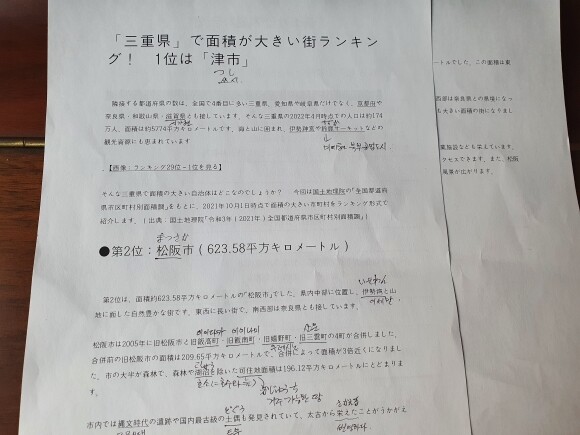 「三重県」で面積が大きい街ランキン
グ！ 1位は「津市」
つし
隣接する都道府県の数は、全国で4番目に多い三重県。愛知県や岐阜県だけでなく、京都府や
奈良県・和歌山県・滋賀県とも接しています。そんな三重県の2022年4月時点での人口は約174
万人、面積は約5774平方キロメートルです。海と山に囲まれ、伊勢神宮や鈴鹿サーキットなどの
観光資源にも恵まれています
【画像：ランキング29位〜1位を見る】
そんな三重県で面積の大きい自治体はどこなのでしょうか？ 今回は国土地理院の「全国都道府
県市区町村別面積調」をもとに、2021年10月1日時点で面積の大きい市町村をランキング形式で
紹介します。（出典：国土地理院「令和3年(2021年)全国都道府県市区町村別面積調」）
まつさか
●第2位：松阪市（623.58平方キロメートル）
いせわん
第2位は、面積約623.58平方キロメートルの「松阪市」でした。県内中部に位置し、伊勢湾と山
地に面した自然豊かな街です。東西に長い街で、南西部は奈良県とも接しています。
松阪市は2005年に旧松阪市と旧飯高町・旧飯南町・旧嬉野町・旧三雲町の4町が合併しました。
合併前の旧松阪市の面積は209.65平方キロメートルで、合併によって面積が3倍近くになりまし
た。市の大半が森林で、森林や湖沼を除いた可住地面積は196.12平方キロメートルにとどまりま
す。
どぐう
市内では縄文時代の遺跡や国内最古級の土偶も発見されていて、太古から栄えたことがうかがえ
ートルでした。この面積は東
西部は奈良県との県境になっ
も大きい面積の街になりまし
風景が広がります。